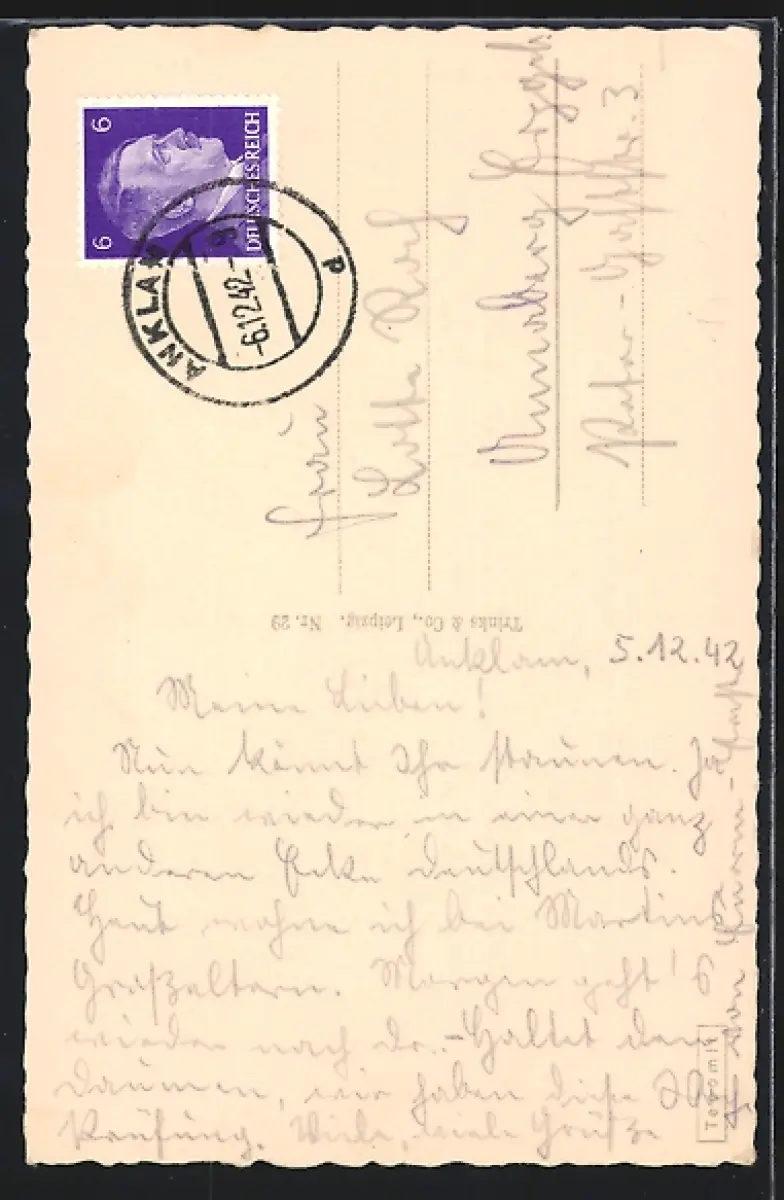 6 6
DEUTSCHES REICH
ANKLAM
-6.12.42.-9
d
Frau
Lotte
Annaberg Erzgeb.
Str. 3
Trinks & Co., Leipzig. Nr. 29
Anklam, 5.12.42
Meine Lieben!
Nun könnt Ihr staunen. Ja
ich bin wieder in einer ganz
anderen Ecke Deutschlands.
Heut wohne ich bei Martins
Großeltern. Morgen geht's
wieder nach Dr. - Haltet den
Daumen, wir haben diese Woch.
Prüfung. Viele, viele Grüße
von